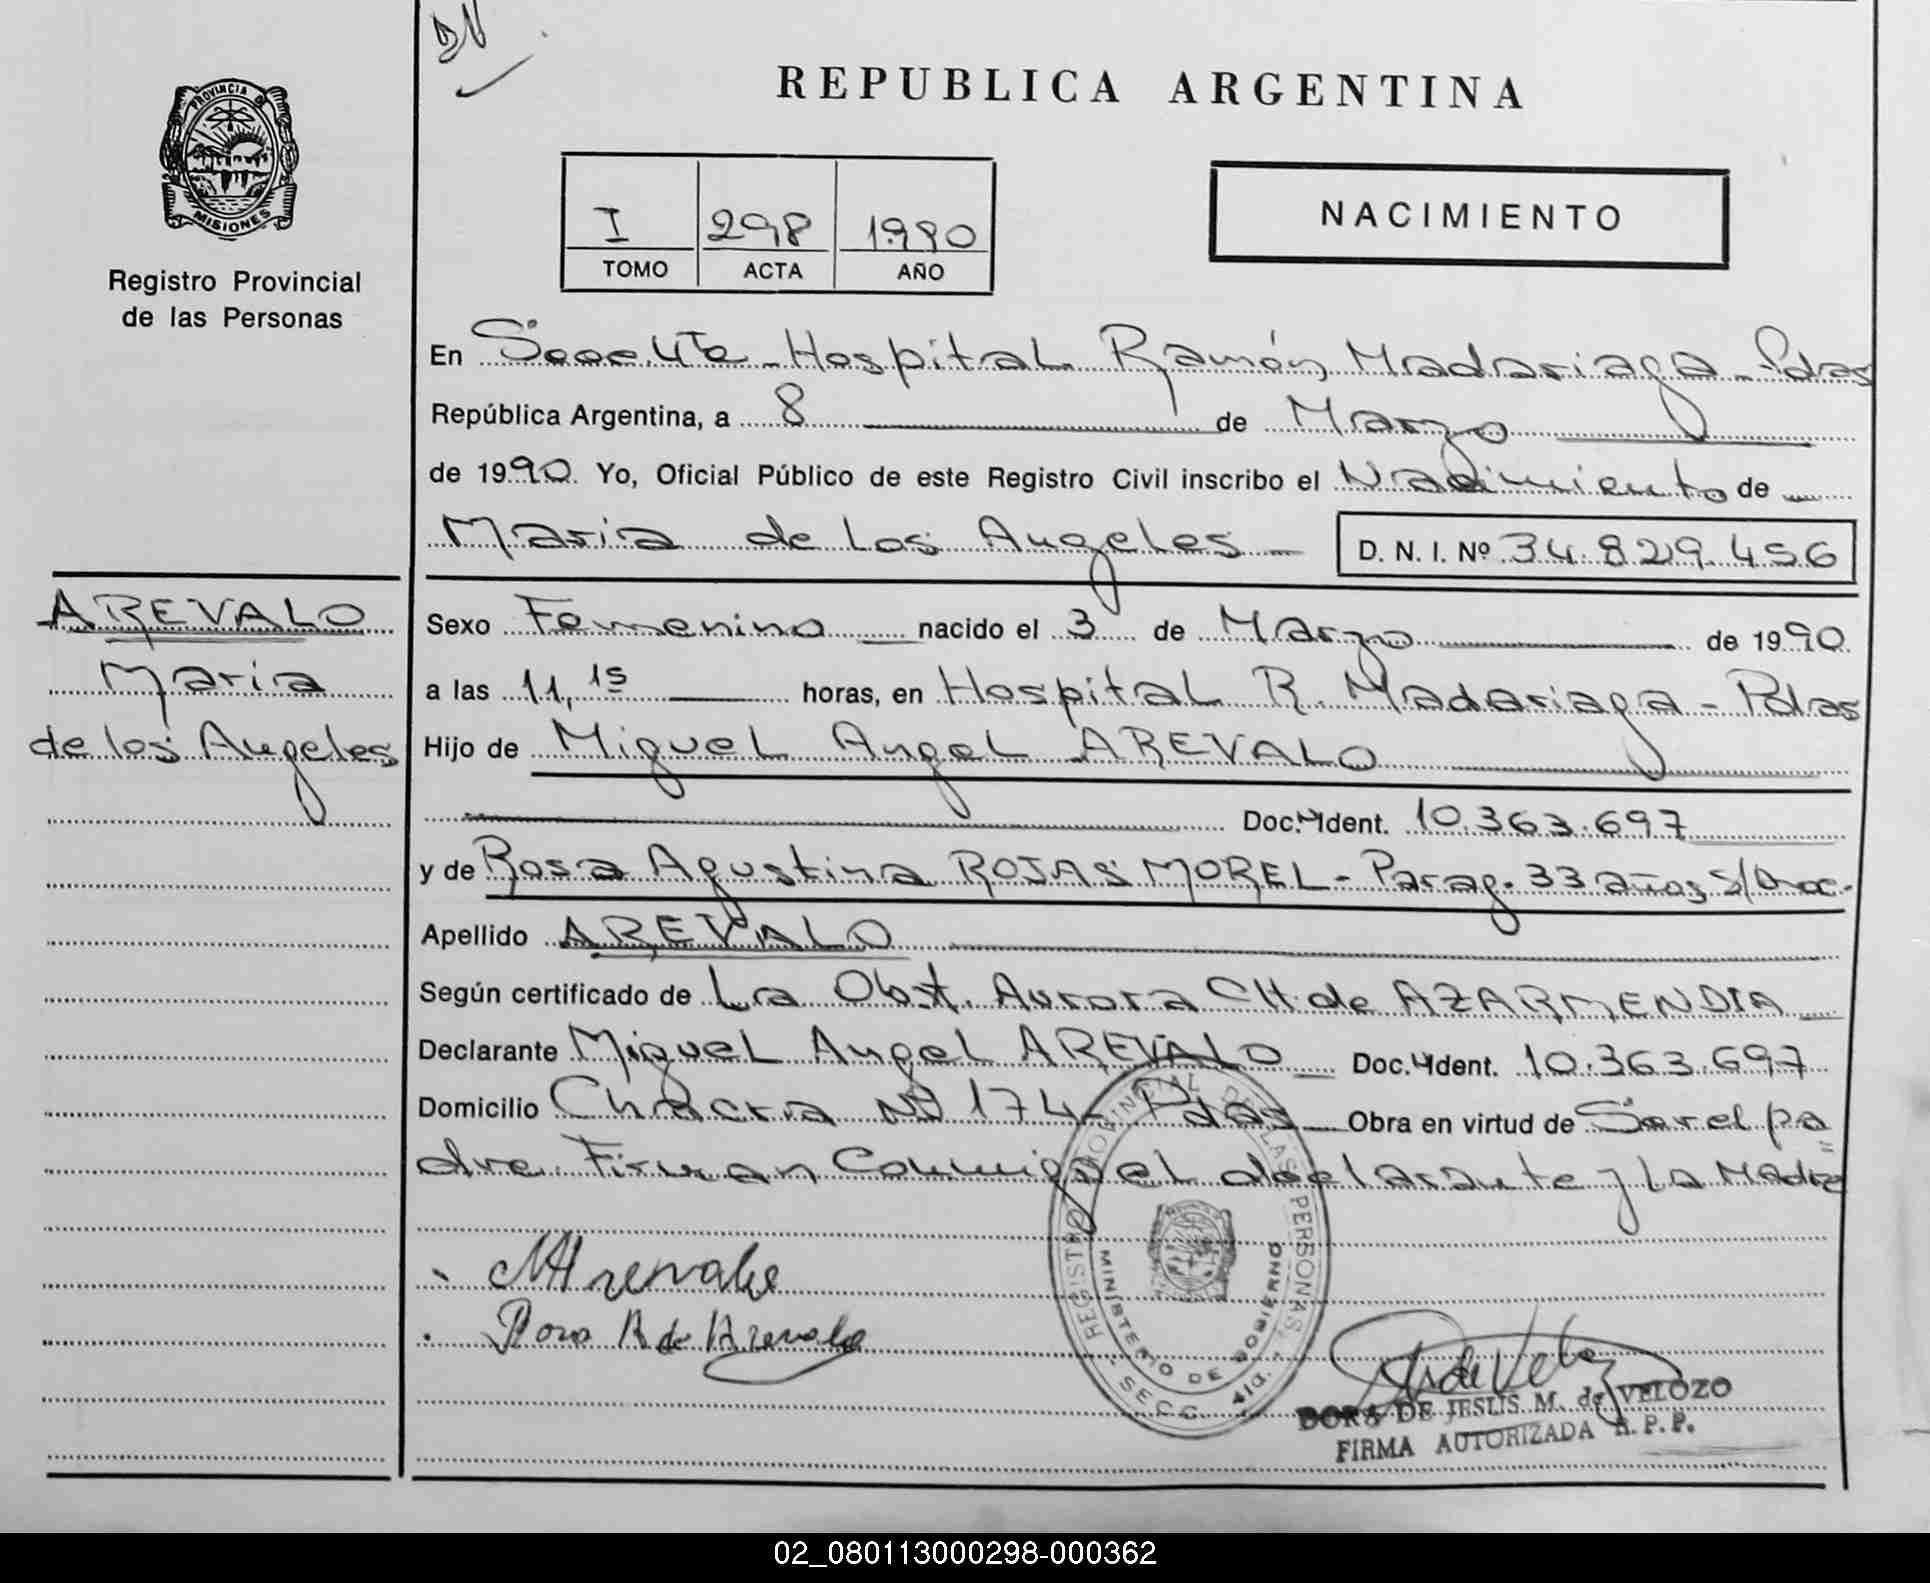 DN
PROVINCIA DE
MISIONES
Registro Provincial
de las Personas
REPUBLICA ARGENTINA
I 298 1990
TOMO ACTA AÑO
NACIMIENTO
En Secc. 4ta - Hospital Ramón Madariaga - Pdas
República Argentina, a 8 de Marzo
de 1990. Yo, Oficial Público de este Registro Civil inscribo el Nacimiento de
Maria de Los Angeles - D. N. I. Nº 34.829.456
AREVALO
Maria
de los Angeles
Sexo Femenino nacido el 3 de Marzo de 1990
a las 11,15 horas, en Hospital R. Madariaga - Pdas
Hijo de Miguel Angel AREVALO
Doc. Ident. 10.363.697
y de Rosa Agustina ROJAS MOREL - Parag. 33 años s/Doc.
Apellido AREVALO
Según certificado de La Obst. Aurora CH. de AZARMENDIA
Declarante Miguel Angel AREVALO Doc. Ident. 10.363.697
Domicilio Chacra Nº 174 - Pdas Obra en virtud de Ser el pa
dre. Firman Conmigo el declarante y La Madre
MArevalo
Rosa R de Arevalo
REGISTRO PROVINCIAL DE LAS PERSONAS
MINISTERIO DE GOBIERNO
SECC. 4ta.
DORA DE JESUS M. de VELOZO
FIRMA AUTORIZADA R. P. P.
02_080113000298-000362